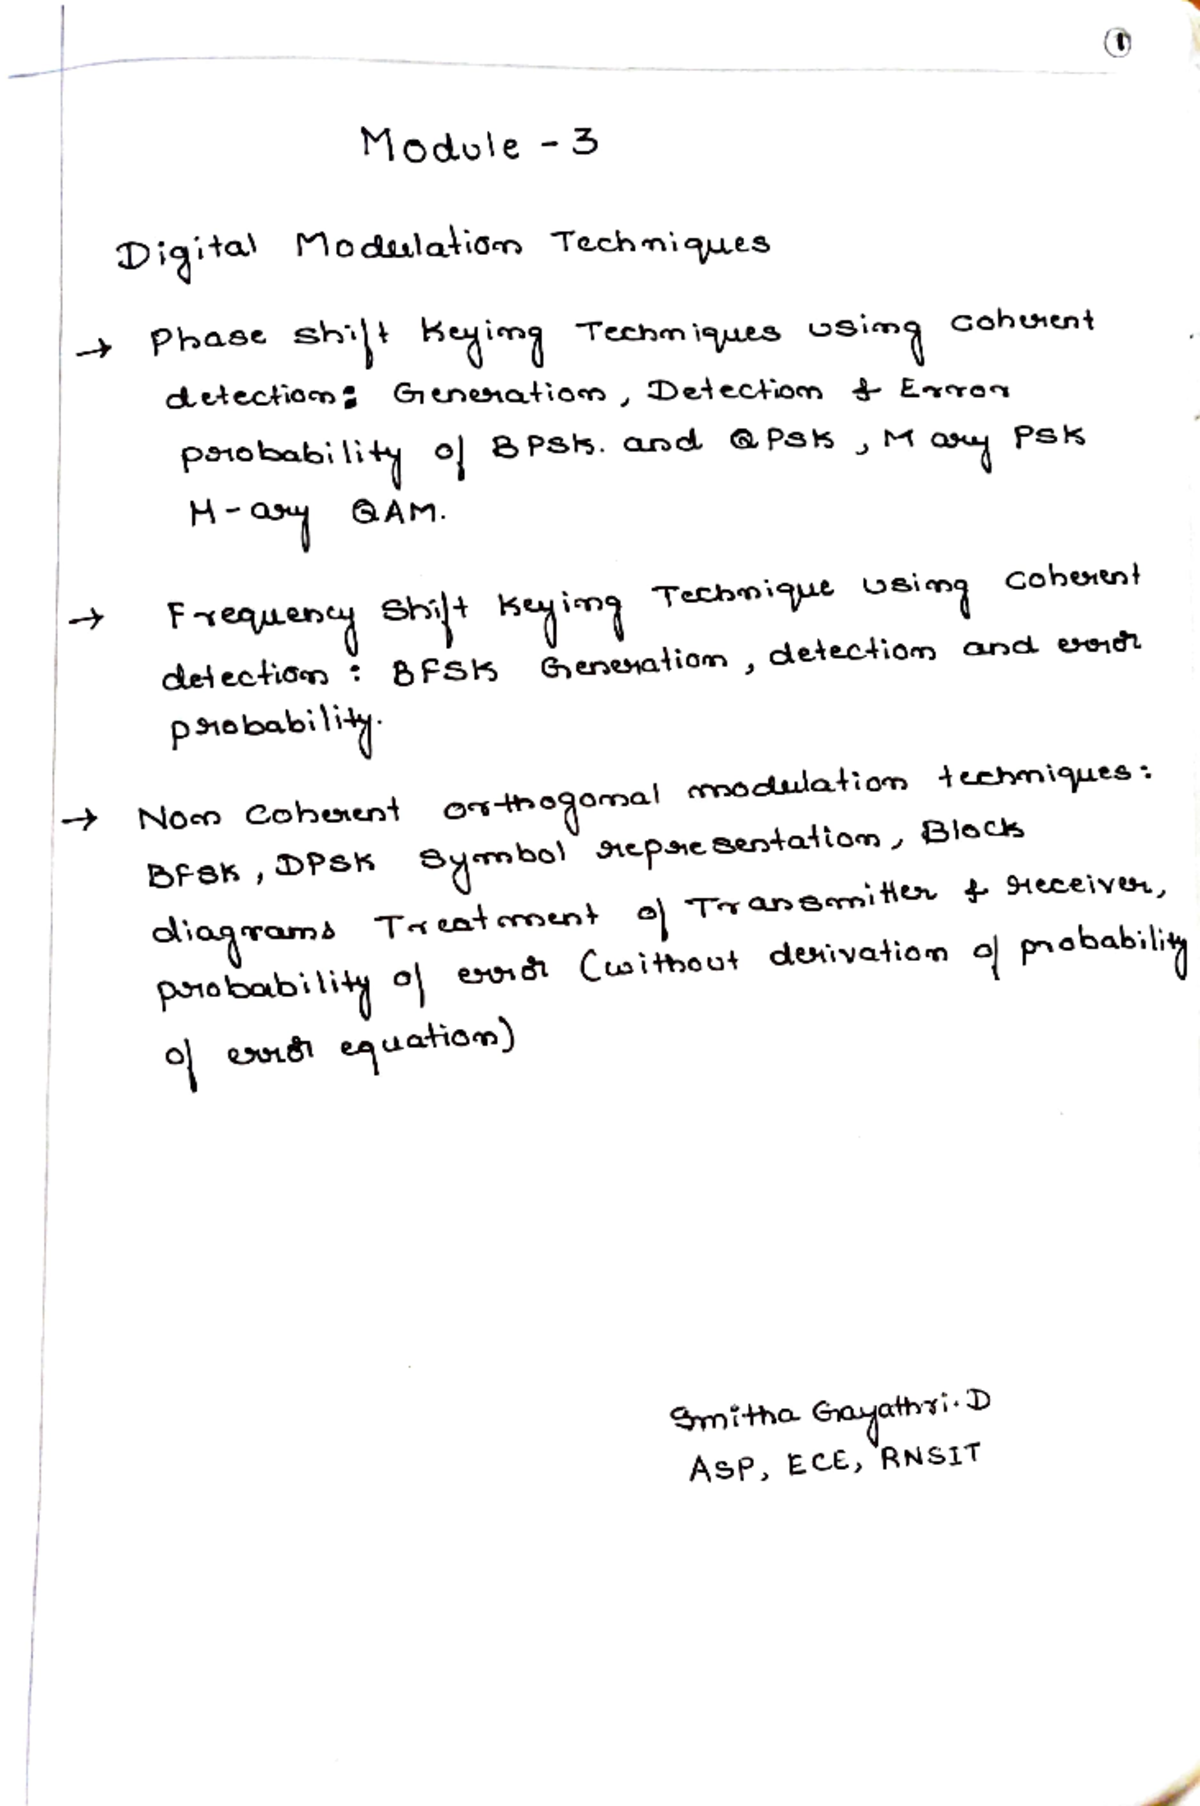 1
Module - 3
Digital Modulation Techniques
→ Phase shift Keying Techniques using coherent
detection: Generation, Detection & Error
probability of BPSK. and QPSK, M ary PSK
M-ary QAM.
→ Frequency Shift Keying Technique using coherent
detection: BFSK Generation, detection and error
probability.
→ Non Coherent orthogonal modulation techniques:
BFSK, DPSK Symbol representation, Block
diagrams Treatment of Transmitter & receiver,
probability of error (without derivation of probability
of error equation)
Smitha Gayathri.D
ASP, ECE, RNSIT